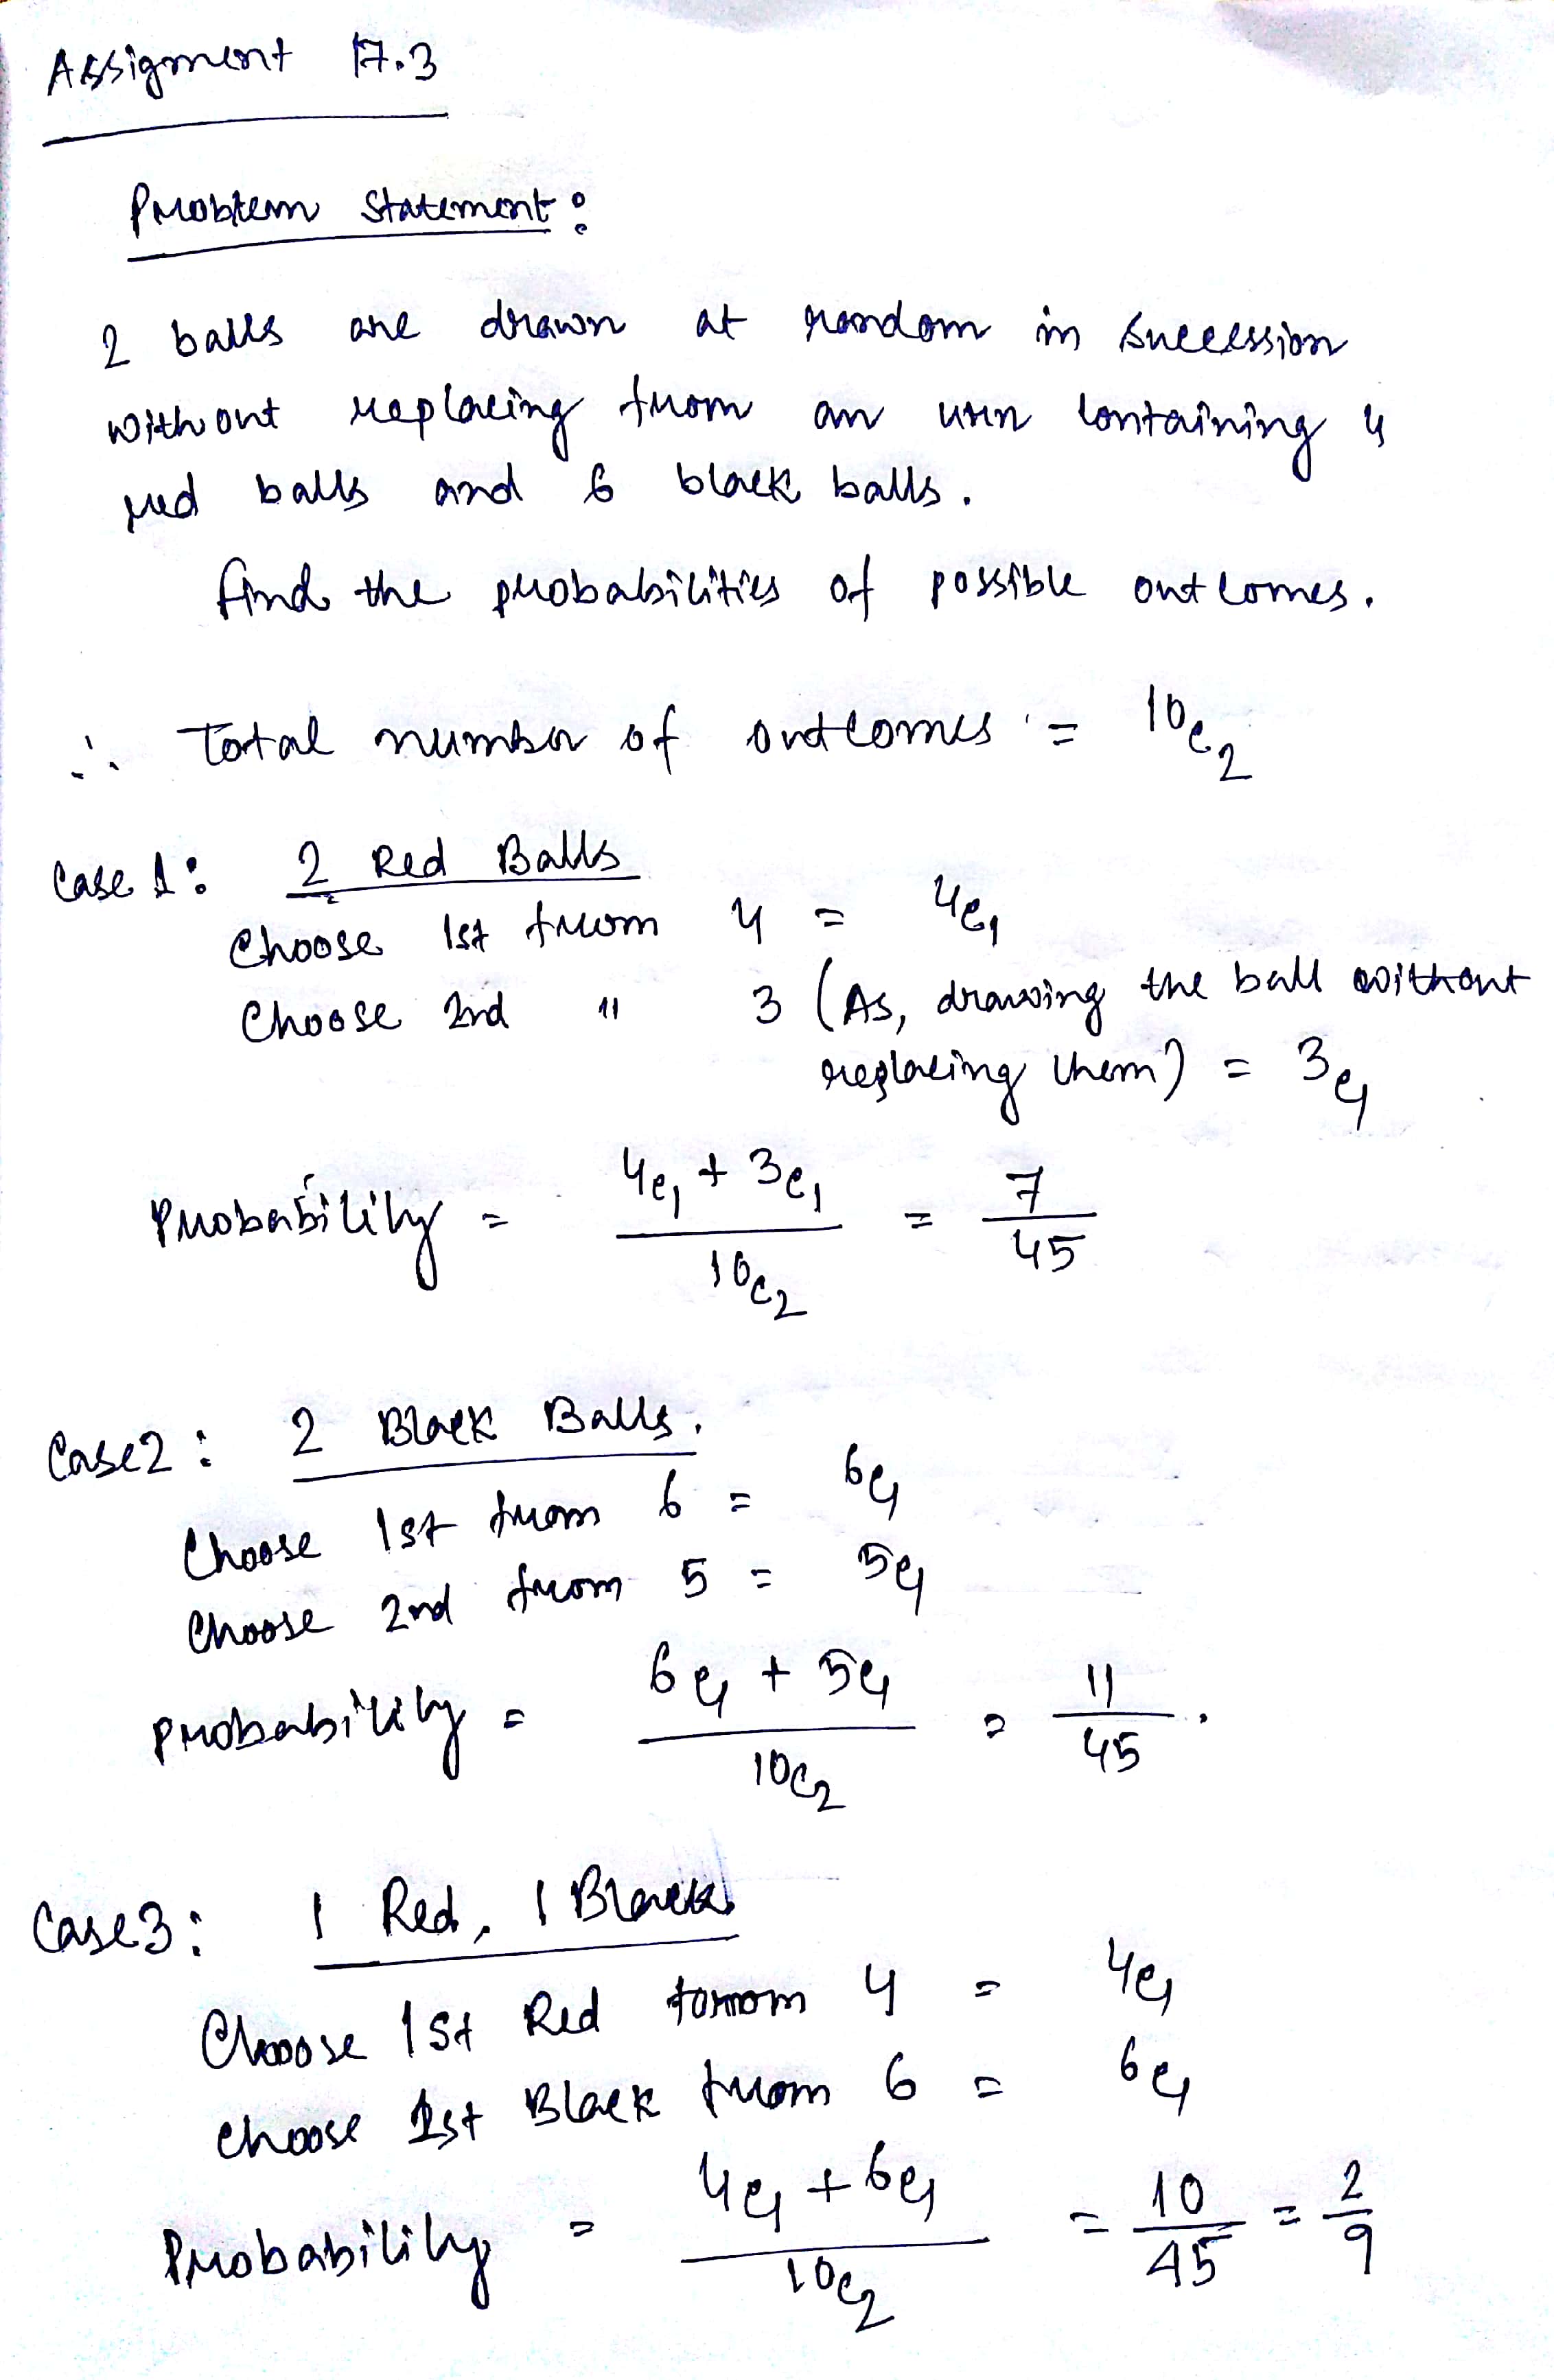 Assigment 17.3
Problem Statement:
2 balls are drawn at random in succession
without replacing from an urn containing 4
red balls and 6 black balls.
find the probabilities of possible outcomes.
∴ Total number of outcomes = 10c2
Case 1: 2 Red Balls
Choose 1st from 4 = 4c1
Choose 2nd " 3 (As, drawing the ball without
replacing them) = 3c1
Probability = (4c1 + 3c1) / 10c2 = 7/45
Case2: 2 Black Balls.
Choose 1st from 6 = 6c1
Choose 2nd from 5 = 5c1
Probability = (6c1 + 5c1) / 10c2 = 11/45.
Case3: 1 Red, 1 Black
Choose 1st Red from 4 = 4c1
choose 1st Black from 6 = 6c1
Probability = (4c1 + 6c1) / 10c2 = 10/45 = 2/9